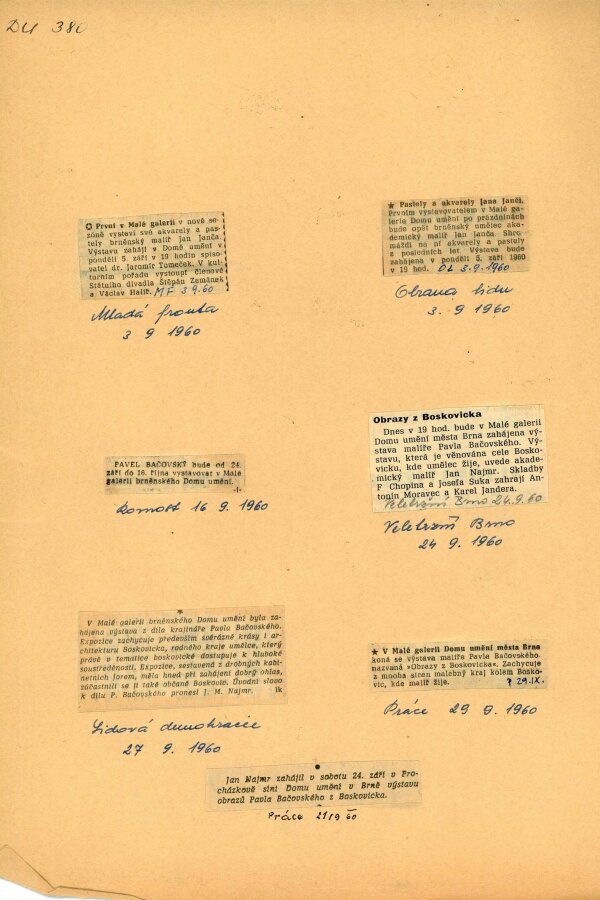 DU 380
✪ První v Malé galerii v nové se-
zóně vystaví své akvarely a pas-
tely brněnský malíř Jan Janča.
Výstavu zahájí v Domě umění v
pondělí 5. září v 19 hodin spiso-
vatel dr. Jaromír Tomeček. V kul-
turním pořadu vystoupí členové
Státního divadla Štěpán Zemánek
a Václav Halíř. MF 3 9.60
Mladá fronta
3 9 1960
★ Pastely a akvarely Jana Janči.
Prvním vystavovatelem v Malé ga-
lerie Domu umění po prázdninách
bude opět brněnský umělec aka-
demický malíř Jan Janča. Shro-
máždí na ní akvarely a pastely
z posledních let. Výstava bude
zahájena v pondělí 5. září 1960
v 19 hod. OL 3.9.1960
Obrana lidu
3. 9 1960
PAVEL BAČOVSKÝ bude od 24.
září do 16. října vystavovat v Malé
galerii brněnského Domu umění. -l-
Rovnost 16 9. 1960
Obrazy z Boskovicka
Dnes v 19 hod. bude v Malé galerii
Domu umění města Brna zahájena vý-
stava malíře Pavla Bačovského. Vý-
stavu, která je věnována cele Bosko-
vicku, kde umělec žije, uvede akade-
mický malíř Jan Najmr. Skladby
F Chopina a Josefa Suka zahrají An-
tonín Moravec a Karel Jandera.
Veletržní Brno 24.9.60
Veletržní Brno
24 9. 1960
★
V Malé galerii brněnského Domu umění byla za-
hájena výstava z díla krajináře Pavla Bačovského.
Expozice zachycuje především svérázné krásy i ar-
chitekturu Boskovicka, rodného kraje umělce, který
právě v tematice boskovické dostupuje k hluboké
soustředěnosti. Expozice, sestavená z drobných kabi-
netních forem, měla hned při zahájení dobrý ohlas,
zúčastnili se jí také občané Boskovic. Úvodní slovo
k dílu P. Bačovského pronesl J. M. Najmr. lk
Lidová demokracie
27 9. 1960
★ V Malé galerii Domu umění města Brna
koná se výstava malíře Pavla Bačovského.
nazvaná »Obrazy z Boskovicka«. Zachycuje
z mnoha stran malebný kraj kolem Bosko-
vic, kde malíř žije. P 29.IX.
Práce 29 9. 1960
Jan Najmr zahájil v sobotu 24. září v Pro-
cházkově síni Domu umění v Brně výstavu
obrazů Pavla Bačovského z Boskovicka.
Práce 21/9 60